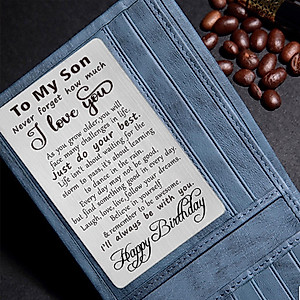 To My Son
Never forget how much
I love you
As you grow older, you will
face many challenges in life.
Just do your best.
Life isn't about waiting for the
storm to pass, it's about learning
to dance in the rain.
Every day may not be good,
but find something good in every day.
Laugh, love, live, follow your dreams.
Believe in yourself
& remember to be awesome.
I'll always be with you.
Happy Birthday